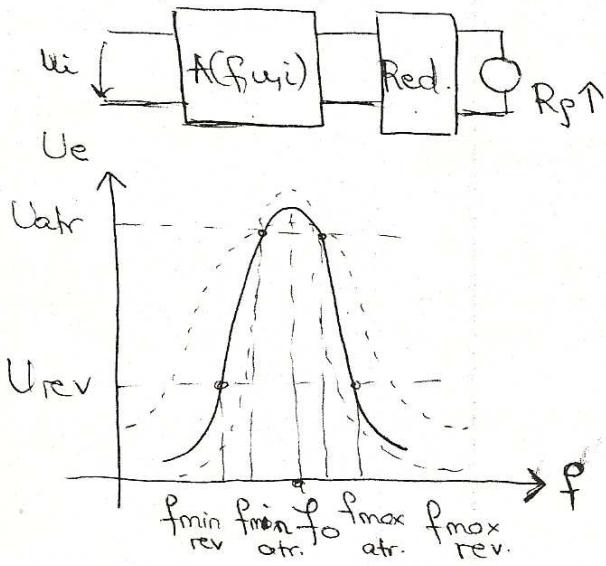 ui A(f,u,i) Red. Rs↑
Ue
Uatr
Urev
f
fmin rev fmin atr. f0 fmax atr. fmax rev.